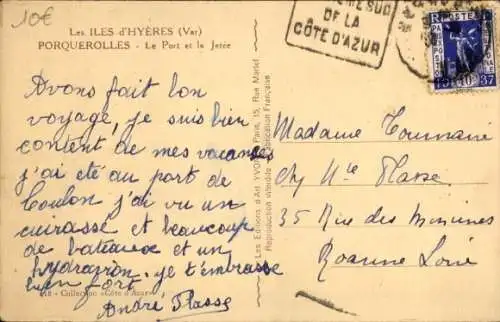 10€
Les ILES d'HYÈRES (Var)
PORQUEROLLES - Le Port et la Jetée
SUD
DE LA
CÔTE D'AZUR
POSTE
37
Avons fait bon
voyage, je suis bien
content de mes vacances
j'ai été au port de
Toulon j'ai vu un
cuirassé et beaucoup
de bateaux et un
hydravion. je t'embrasse
bien fort
André Plasse
Collection «Côte d'Azur»
Les Editions d'Art YVON, Paris, 15, Rue Martel
Reproduction interdite Fabrication Française
Madame Toumaire
chz Mle Plasse
35 Rue des Minimes
Roanne Loire